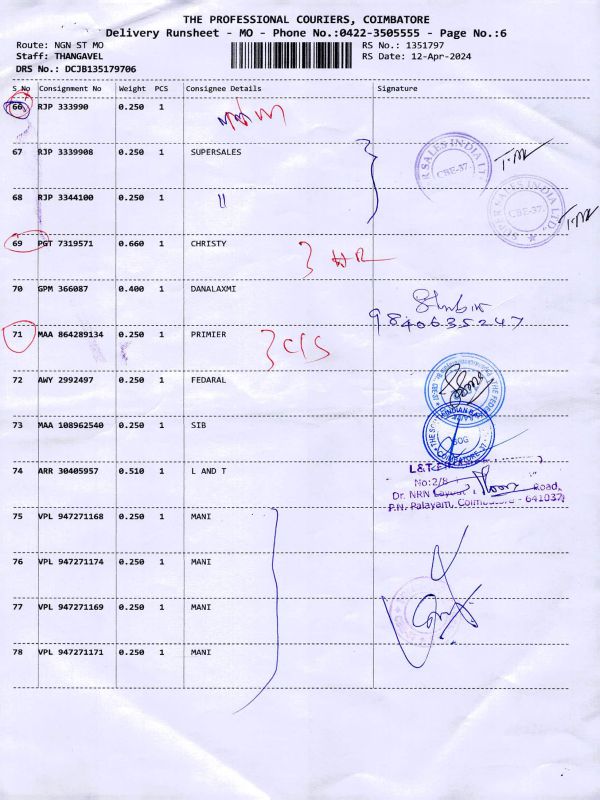 THE PROFESSIONAL COURIERS, COIMBATORE
Delivery Runsheet - MO - Phone No.:0422-3505555 - Page No.:6
Route: NGN ST MO RS No.: 1351797
Staff: THANGAVEL RS Date: 12-Apr-2024
DRS No.: DCJB135179706
S_No Consignment No Weight PCS Consignee Details Signature
66 RJP 333990 0.250 1
67 RJP 3339908 0.250 1 SUPERSALES
68 RJP 3344100 0.250 1 "
69 PGT 7319571 0.660 1 CHRISTY
70 GPM 366087 0.400 1 DANALAXMI
9840635247
71 MAA 864289134 0.250 1 PRIMIER C/S
72 AWY 2992497 0.250 1 FEDARAL
73 MAA 108962540 0.250 1 SIB
74 ARR 30405957 0.510 1 L AND T
L&T
No:2/8
Dr. NRN Layout Road,
P.N. Palayam, Coimbatore - 641037
75 VPL 947271168 0.250 1 MANI
76 VPL 947271174 0.250 1 MANI
77 VPL 947271169 0.250 1 MANI
78 VPL 947271171 0.250 1 MANI
SUPER SALES INDIA LTD.
CBE-37.